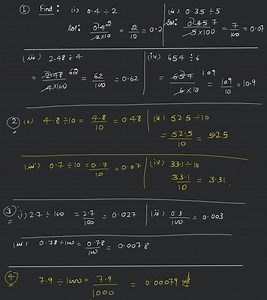 ① Find: (i) 0.4 ÷ 2 (ii) 0.35 ÷ 5
Sol: 0.4 2 / 2 × 10 = 2/10 = 0.2 Sol: 0.35 7 / 5 × 100 = 7/100 = 0.07
(iii) 2.48 ÷ 4 (iv) 65.4 ÷ 6
= 2.48 62 / 4 × 100 = 62/100 = 0.62 = 65.4 109 / 6 × 10 = 109/10 = 10.9
② (i) 4.8 ÷ 10 = 4.8/10 = 0.48 (ii) 52.5 ÷ 10
= 52.5/10 = 5.25
(iii) 0.7 ÷ 10 = 0.7/10 = 0.07 (iv) 33.1 ÷ 10
33.1/10 = 3.31
③ (i) 2.7 ÷ 100 = 2.7/100 = 0.027 (ii) 0.3/100 = 0.003
(iii) 0.78 ÷ 100 = 0.78/100 = 0.0078
④ 7.9 ÷ 1000 = 7.9/1000 = 0.0079